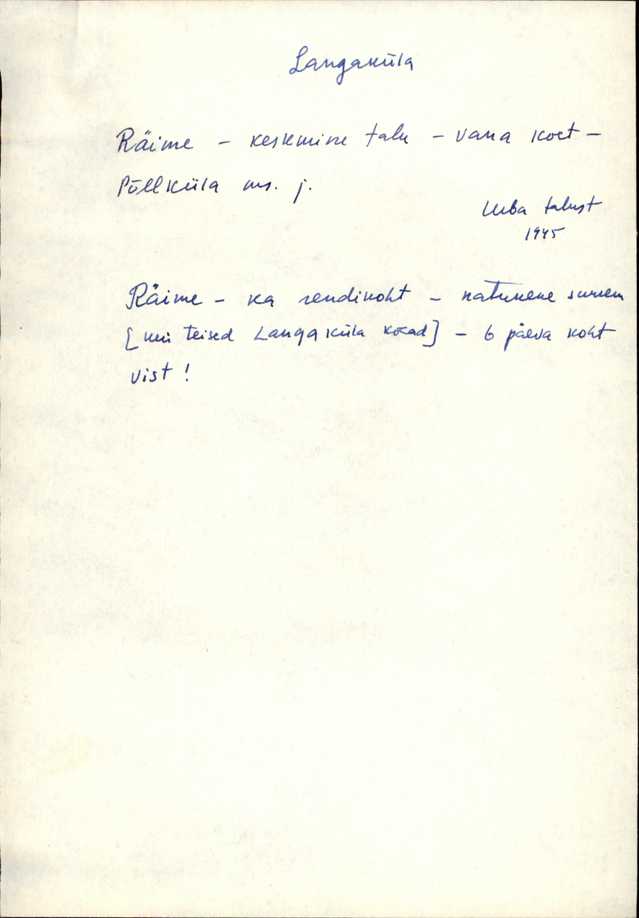 Langaküla
Räime – keskmine talu – vana koht –
Põllküla ms. j.
Uuba talust
1945
Räime – ka rendikoht – natukene suurem
[kui teised Langaküla kohad] – 6 päeva koht
vist!